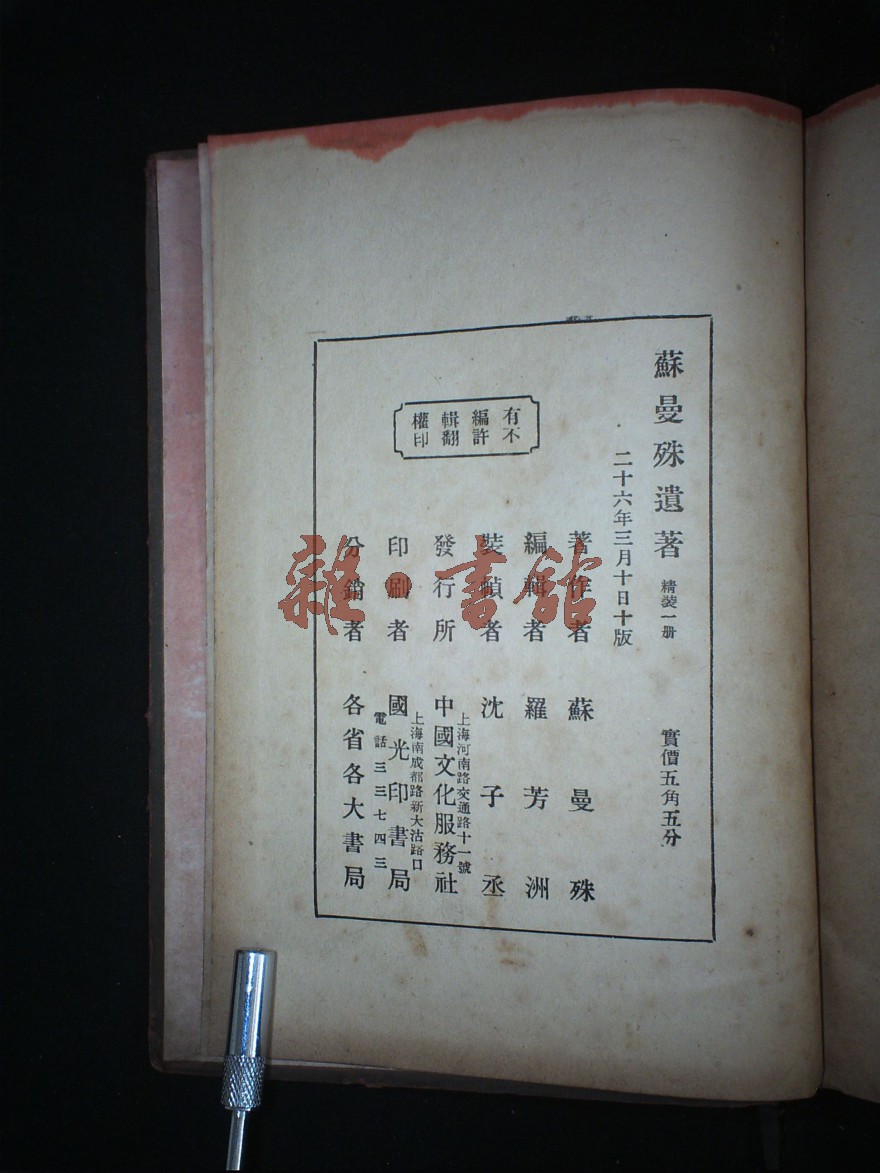 蘇曼殊遺著 精裝一册 實價五角五分
二十六年三月十日十版
著作者 蘇曼殊
編輯者 羅芳洲
裝幀者 沈子丞
上海河南路交通路十一號
發行所 中國文化服務社
上海南成都路新大沽路口
印刷者 國光印書局
電話三三七四三
分銷者 各省各大書局
有編輯權
不許翻印
雜·書館